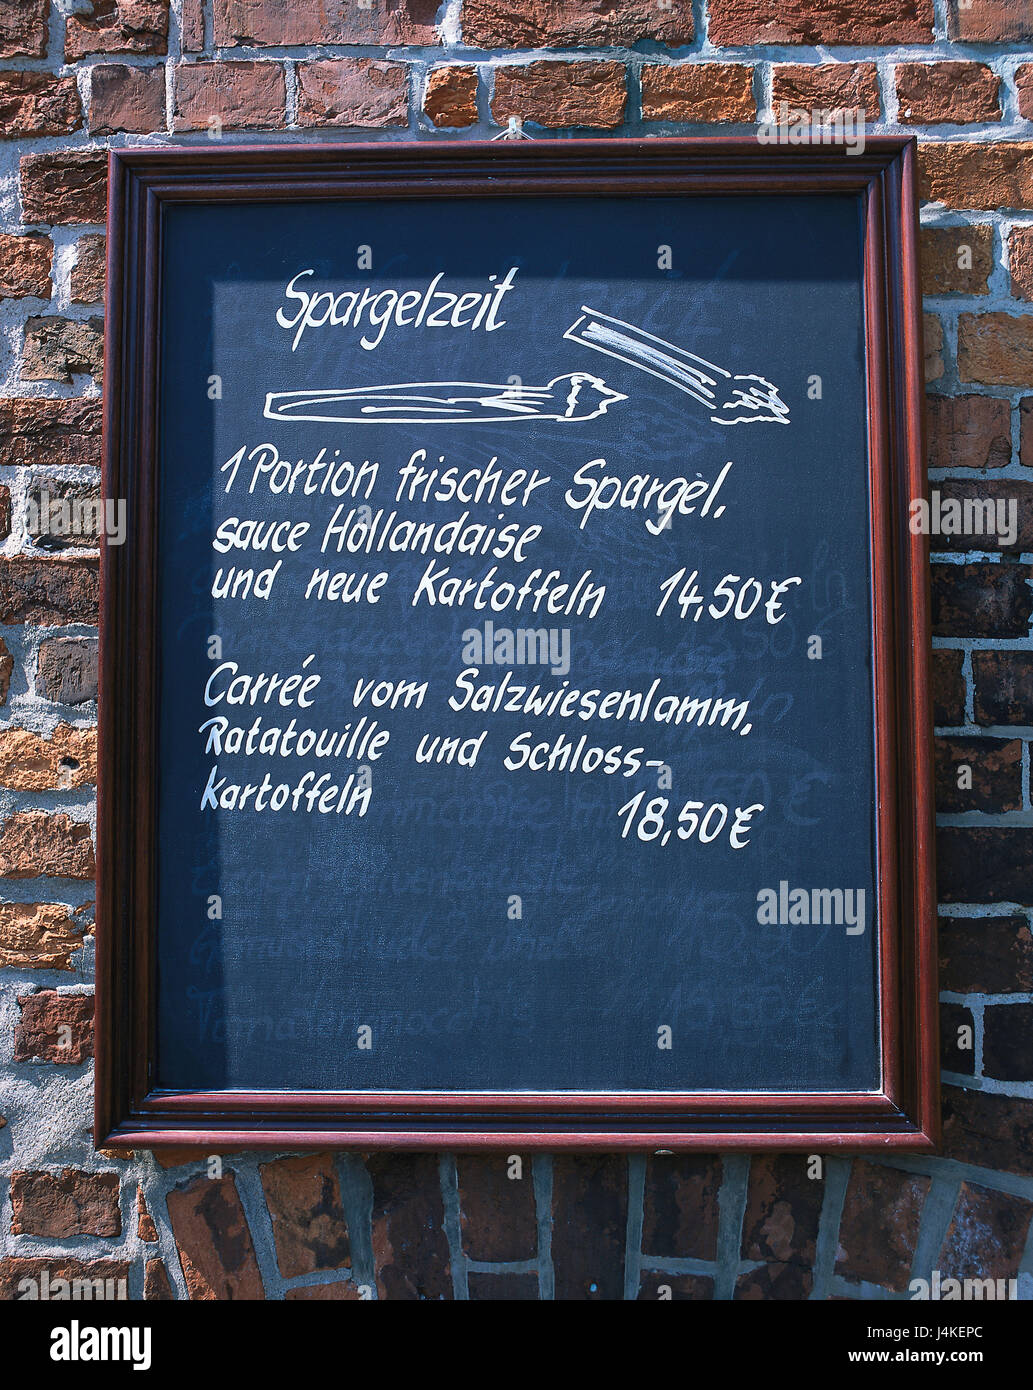 Spargelzeit
1 Portion frischer Spargel,
sauce Hollandaise
und neue Kartoffeln 14,50€
Carréé vom Salzwiesenlamm,
Ratatouille und Schloss-
kartoffeln 18,50€
alamy
alamy
alamy
alamy
alamy
alamy
Image ID: J4KEPC
www.alamy.com